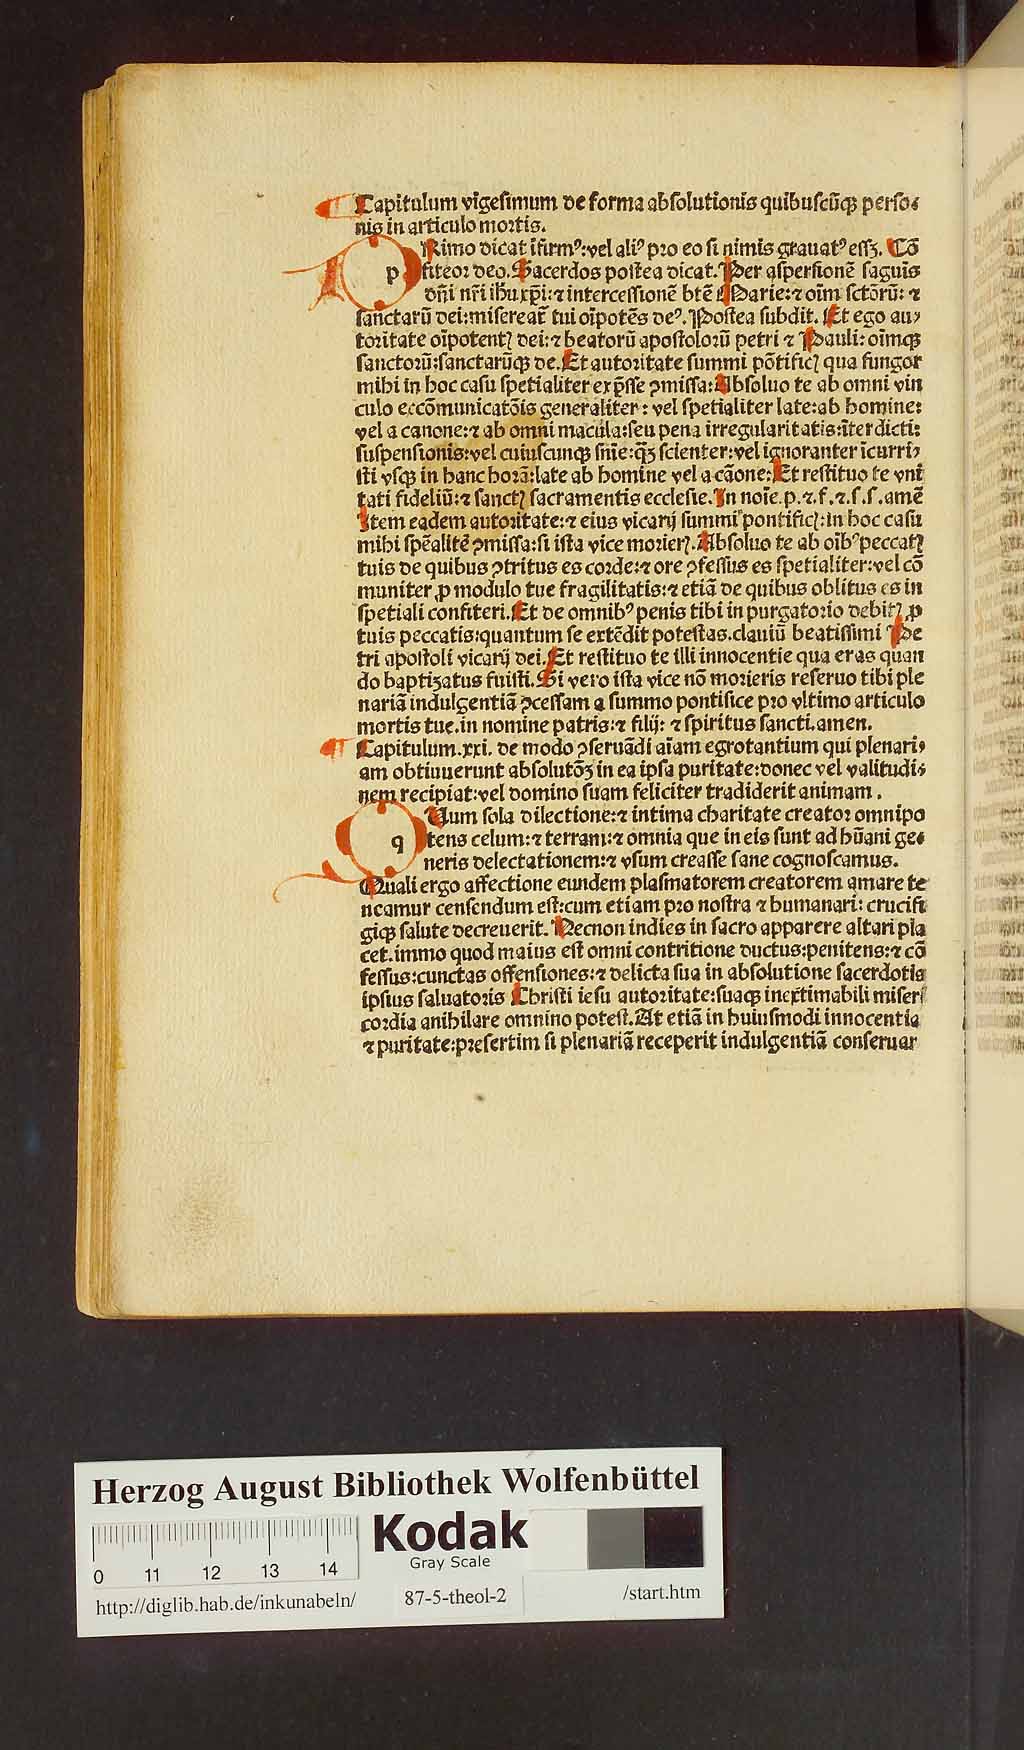 Capitulum vigesimum de forma absolutionis quibuscūqꝫ perso⸗
nis in articulo mortis.
PRimo dicat īfirmꝰ: vel aliꝰ pro eo si nimis grauatꝰ essꝫ. Cō
fiteor deo. Sacerdos postea dicat. Per aspersionē sāguīs
dn̄i nr̄i ih̄u xp̄i: ⁊ intercessionē btē Marie: ⁊ oīm sctōrū: ⁊
sanctarū dei: misereat᷑ tui oīpotēs deꝰ. Postea subdit. Et ego au⸗
toritate oīpotentꝭ dei: ⁊ beatorū apostolorū petri ⁊ Pauli: oīmqꝫ
sanctorū: sanctarūqꝫ de. Et autoritate summi pōtificꝭ qua fungor
mihi in hoc casu spetialiter exp̄sse ꝯmissa: Absoluo te ab omni vin
culo eccōmunicatōis generaliter: vel spetialiter late: ab homine:
vel a canone: ⁊ ab omni macula: seu pena irregularitatis: īterdicti:
suspensionis: vel cuiuscunqꝫ snīe: qꝫ̄ scienter: vel ignoranter īcurri⸗
sti vsqꝫ in hanc horā: late ab homine vel a cāone: Et restituo te vni
tati fideliū: ⁊ sanctꝭ sacramentis ecclesie. In noīe. p. ⁊. f. ⁊. s. s. amē
Item eadem autoritate: ⁊ eius vicarij summi pontificꝭ: in hoc casu
mihi spēalitē ꝯmissa: si ista vice morierꝭ. Absoluo te ab oībꝰ peccatꝭ
tuis de quibus ꝯtritus es corde: ⁊ ore ꝯfessus es spetialiter: vel cō
muniter ꝓ modulo tue fragilitatis: ⁊ etiā de quibus oblitus es in
spetiali confiteri. Et de omnibꝰ penis tibi in purgatorio debitꝭ ꝓ
tuis peccatis: quantum se extēdit potestas. clauiū beatissimi Pe
tri apostoli vicarij dei. Et restituo te illi innocentie qua eras quan
do baptizatus fuisti. Si vero ista vice nō morieris reseruo tibi ple
nariā indulgentiā ꝯcessam a summo pontifice pro vltimo articulo
mortis tue. in nomine patris: ⁊ filij: ⁊ spiritus sancti. amen.
Capitulum. xxi. de modo ꝯseruādi aīam egrotantium qui plenari⸗
am obtinuerunt absolutōꝫ in ea ipsa puritate: donec vel valitudi⸗
nem recipiat: vel domino suam feliciter tradiderit animam.
qUum sola dilectione: ⁊ intima charitate creator omnipo
tens celum: ⁊ terram: ⁊ omnia que in eis sunt ad hūani ge⸗
neris delectationem: ⁊ vsum creasse sane cognoscamus.
Quali ergo affectione eundem plasmatorem creatorem amare te
neamur censendum est: cum etiam pro nostra ⁊ humanari: crucifi
giqꝫ salute decreuerit. Necnon indies in sacro apparere altari pla
cet. immo quod maius est omni contritione ductus: penitens: ⁊ cō
fessus: cunctas offensiones: ⁊ delicta sua in absolutione sacerdotis
ipsius saluatoris Christi iesu autoritate: suaqꝫ inextimabili miseri
cordia anihilare omnino potest. At etiā in huiusmodi innocentia
⁊ puritate: presertim si plenariā receperit indulgentiā conseruar
Herzog August Bibliothek Wolfenbüttel
Kodak
Gray Scale
0 11 12 13 14
http://diglib.hab.de/inkunabeln/ 87-5-theol-2 /start.htm